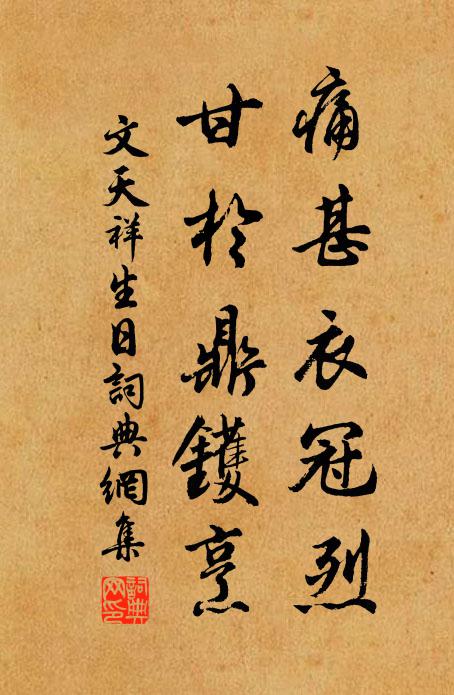 痛甚衣冠烈
甘於鼎鑊烹
文天祥生日詞典網集
詞典网印